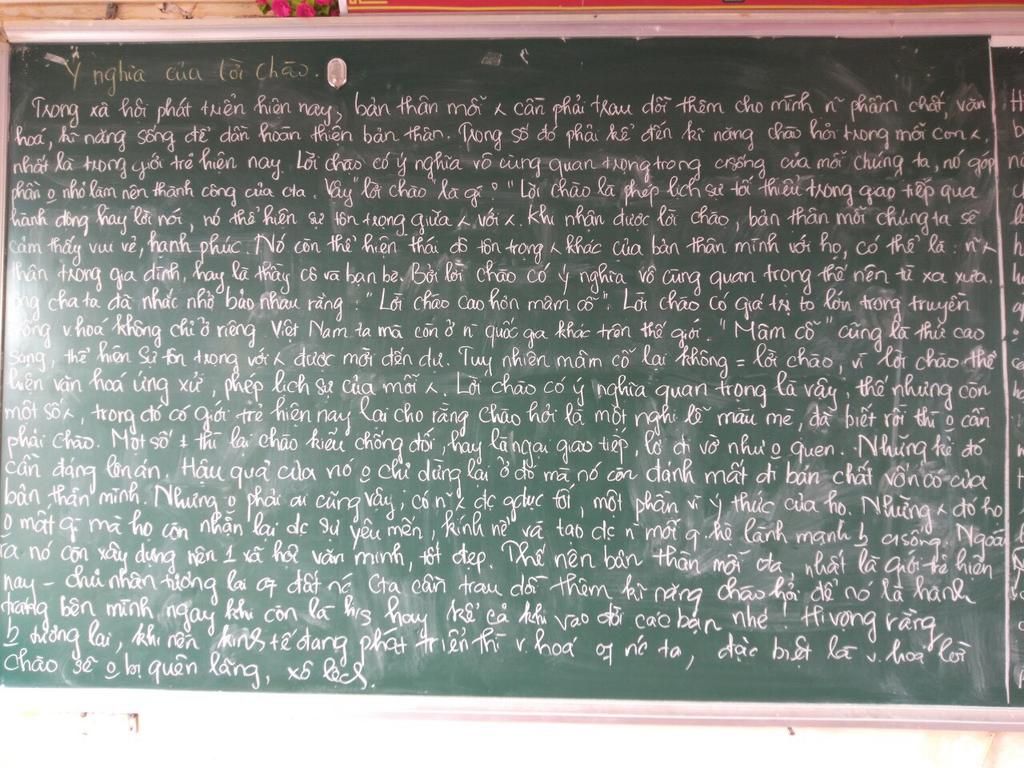 Ý nghĩa của lời chào.
Trong xã hội phát triển hiện nay, bản thân mỗi x cần phải trau dồi thêm cho mình n~ phẩm chất, văn
hoá, kĩ năng sống để dần hoàn thiện bản thân. Trong số đó phải kể đến kĩ năng chào hỏi trong mỗi con x,
nhất là trong giới trẻ hiện nay. Lời chào có ý nghĩa vô cùng quan trọng trong c/sống của mỗi chúng ta, nó góp
phần o nhỏ làm nên thành công của cta. Vậy "lời chào" là gì? "Lời chào là phép lịch sự tối thiểu trong giao tiếp qua
hành động hay lời nói, nó thể hiện sự tôn trọng giữa x với x. Khi nhận được lời chào, bản thân mỗi chúng ta sẽ
cảm thấy vui vẻ, hạnh phúc. Nó còn thể hiện thái độ tôn trọng x khác của bản thân mình với họ, có thể là: n~ x
thân trong gia đình, hay là thầy cô và bạn bè. Bởi lời chào có ý nghĩa vô cùng quan trọng thế nên từ xa xưa,
ông cha ta đã nhắc nhở bảo nhau rằng: "Lời chào cao hơn mâm cỗ". Lời chào có giá trị to lớn trong truyền
thống v.hoá không chỉ ở riêng Việt Nam ta mà còn ở n~ quốc gia khác trên thế giới. "Mâm cỗ" cũng là thứ cao
sang, thể hiện sự tôn trọng với x được mời đến dự. Tuy nhiên mâm cỗ lại không = lời chào, vì lời chào thể
hiện văn hoá ứng xử, phép lịch sự của mỗi x. Lời chào có ý nghĩa quan trọng là vậy, thế nhưng còn
một số x, trong đó có giới trẻ hiện nay lại cho rằng chào hỏi là một nghi lễ màu mè, đã biết rồi thì o cần
phải chào. Một số thì lại chào kiểu chống đối, hay là ngại giao tiếp, lờ đi vờ như o quen. Những kẻ đó
cần đáng lên án. Hậu quả của nó o chỉ dừng lại ở đó mà nó còn đánh mất đi bản chất vốn có của
bản thân mình. Nhưng o phải ai cũng vậy; có n~ x đc gdục tốt, một phần vì ý thức của họ. Những x đó họ
o mất gì mà họ còn nhận lại đc sự yêu mến, kính nể và tạo đc n~ mối q.hệ lành mạnh c/sống. Ngoài
ra nó còn xây dựng nên 1 xã hội văn minh, tốt đẹp. Thế nên bản thân mỗi cta nhất là giới trẻ hiện
nay - chủ nhân tương lai đất nc. Cta cần trau dồi thêm kĩ năng chào hỏi để nó là hành
trang bên mình ngay khi còn là h/s hay kể cả khi vào đời các bạn nhé. Hi vọng rằng
tương lai, khi nền kinh tế đang phát triển thì v.hoá nc ta, đặc biệt là v.hoá lời
chào sẽ o bị quên lãng, xô lệch.